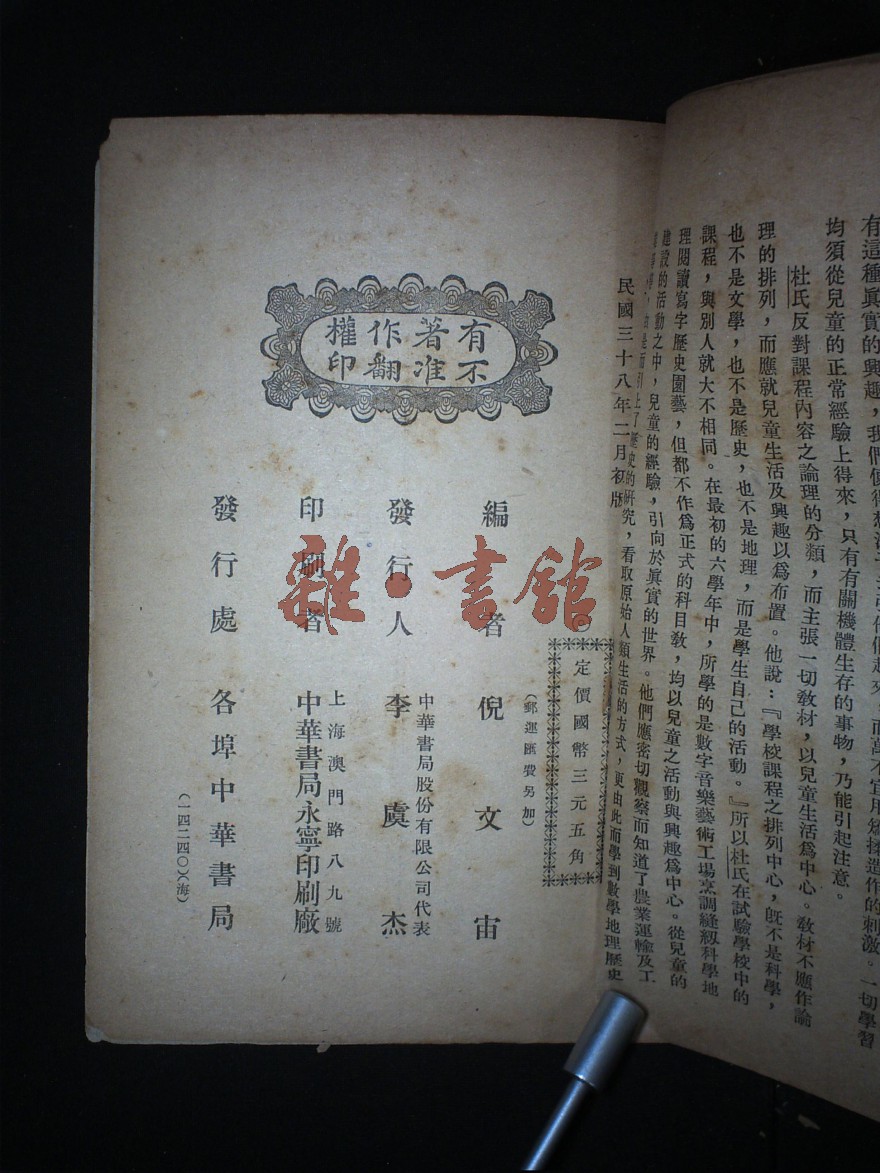 有這種眞實的興趣，我們
均須從兒童的正常經驗上得來，只有有關機體生存的事物，乃能引起注意。
杜氏反對課程內容之論理的分類，而主張一切教材，以兒童生活爲中心。教材不應作論
理的排列，而應就兒童生活及興趣以爲布置。他說：『學校課程之排列中心，旣不是科學，
也不是文學，也不是歷史，也不是地理，而是學生自己的活動。』所以杜氏在試驗學校中的
課程，與別人就大不相同。在最初的六學年中，所學的是數字音樂藝術工場烹調縫級科學地
理閱讀寫字歷史園藝，但都不作爲正式的科目教，均以兒童之活動與興趣爲中心。從兒童的
建設的活動之中，兒童的經驗，引向於眞實的世界。他們應密切觀察而知道了農業運輸及工
引上了歷史的研究，看取原始人類生活的方式，更由此而學到數學地理歷史
民國三十八年二月初版
有著作權
不准翻印
定價國幣三元五角
（郵運匯費另加）
編者 倪文宙
發行人 李虞杰
中華書局股份有限公司代表
印刷者 中華書局永寧印刷廠
上海澳門路八九號
發行處 各埠中華書局
（一四二四〇）（海）
雜·書館